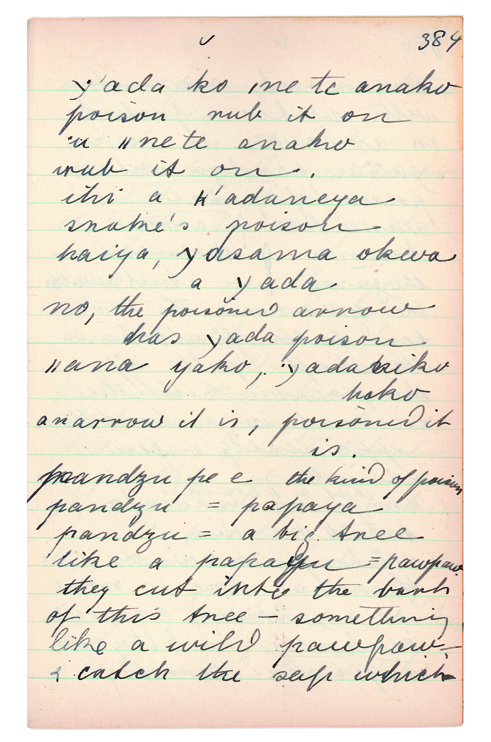 384
yada ko ǀne te anako
poison rub it on
ǁnete anako
rub it on.
ihi a k'adaneya
snake's poison
haiya, yasama okewa
a yada
no, the poisoned arrow
has yada poison
ǁana yako, yada
hoko
an arrow it is, poisoned it
is.
pandzu pe e the kind of poison
pandzu = papaya
pandzu = a big tree
like a = pawpaw
they cut into the bark
of this tree – something
like a wild pawpaw –
& catch the sap which